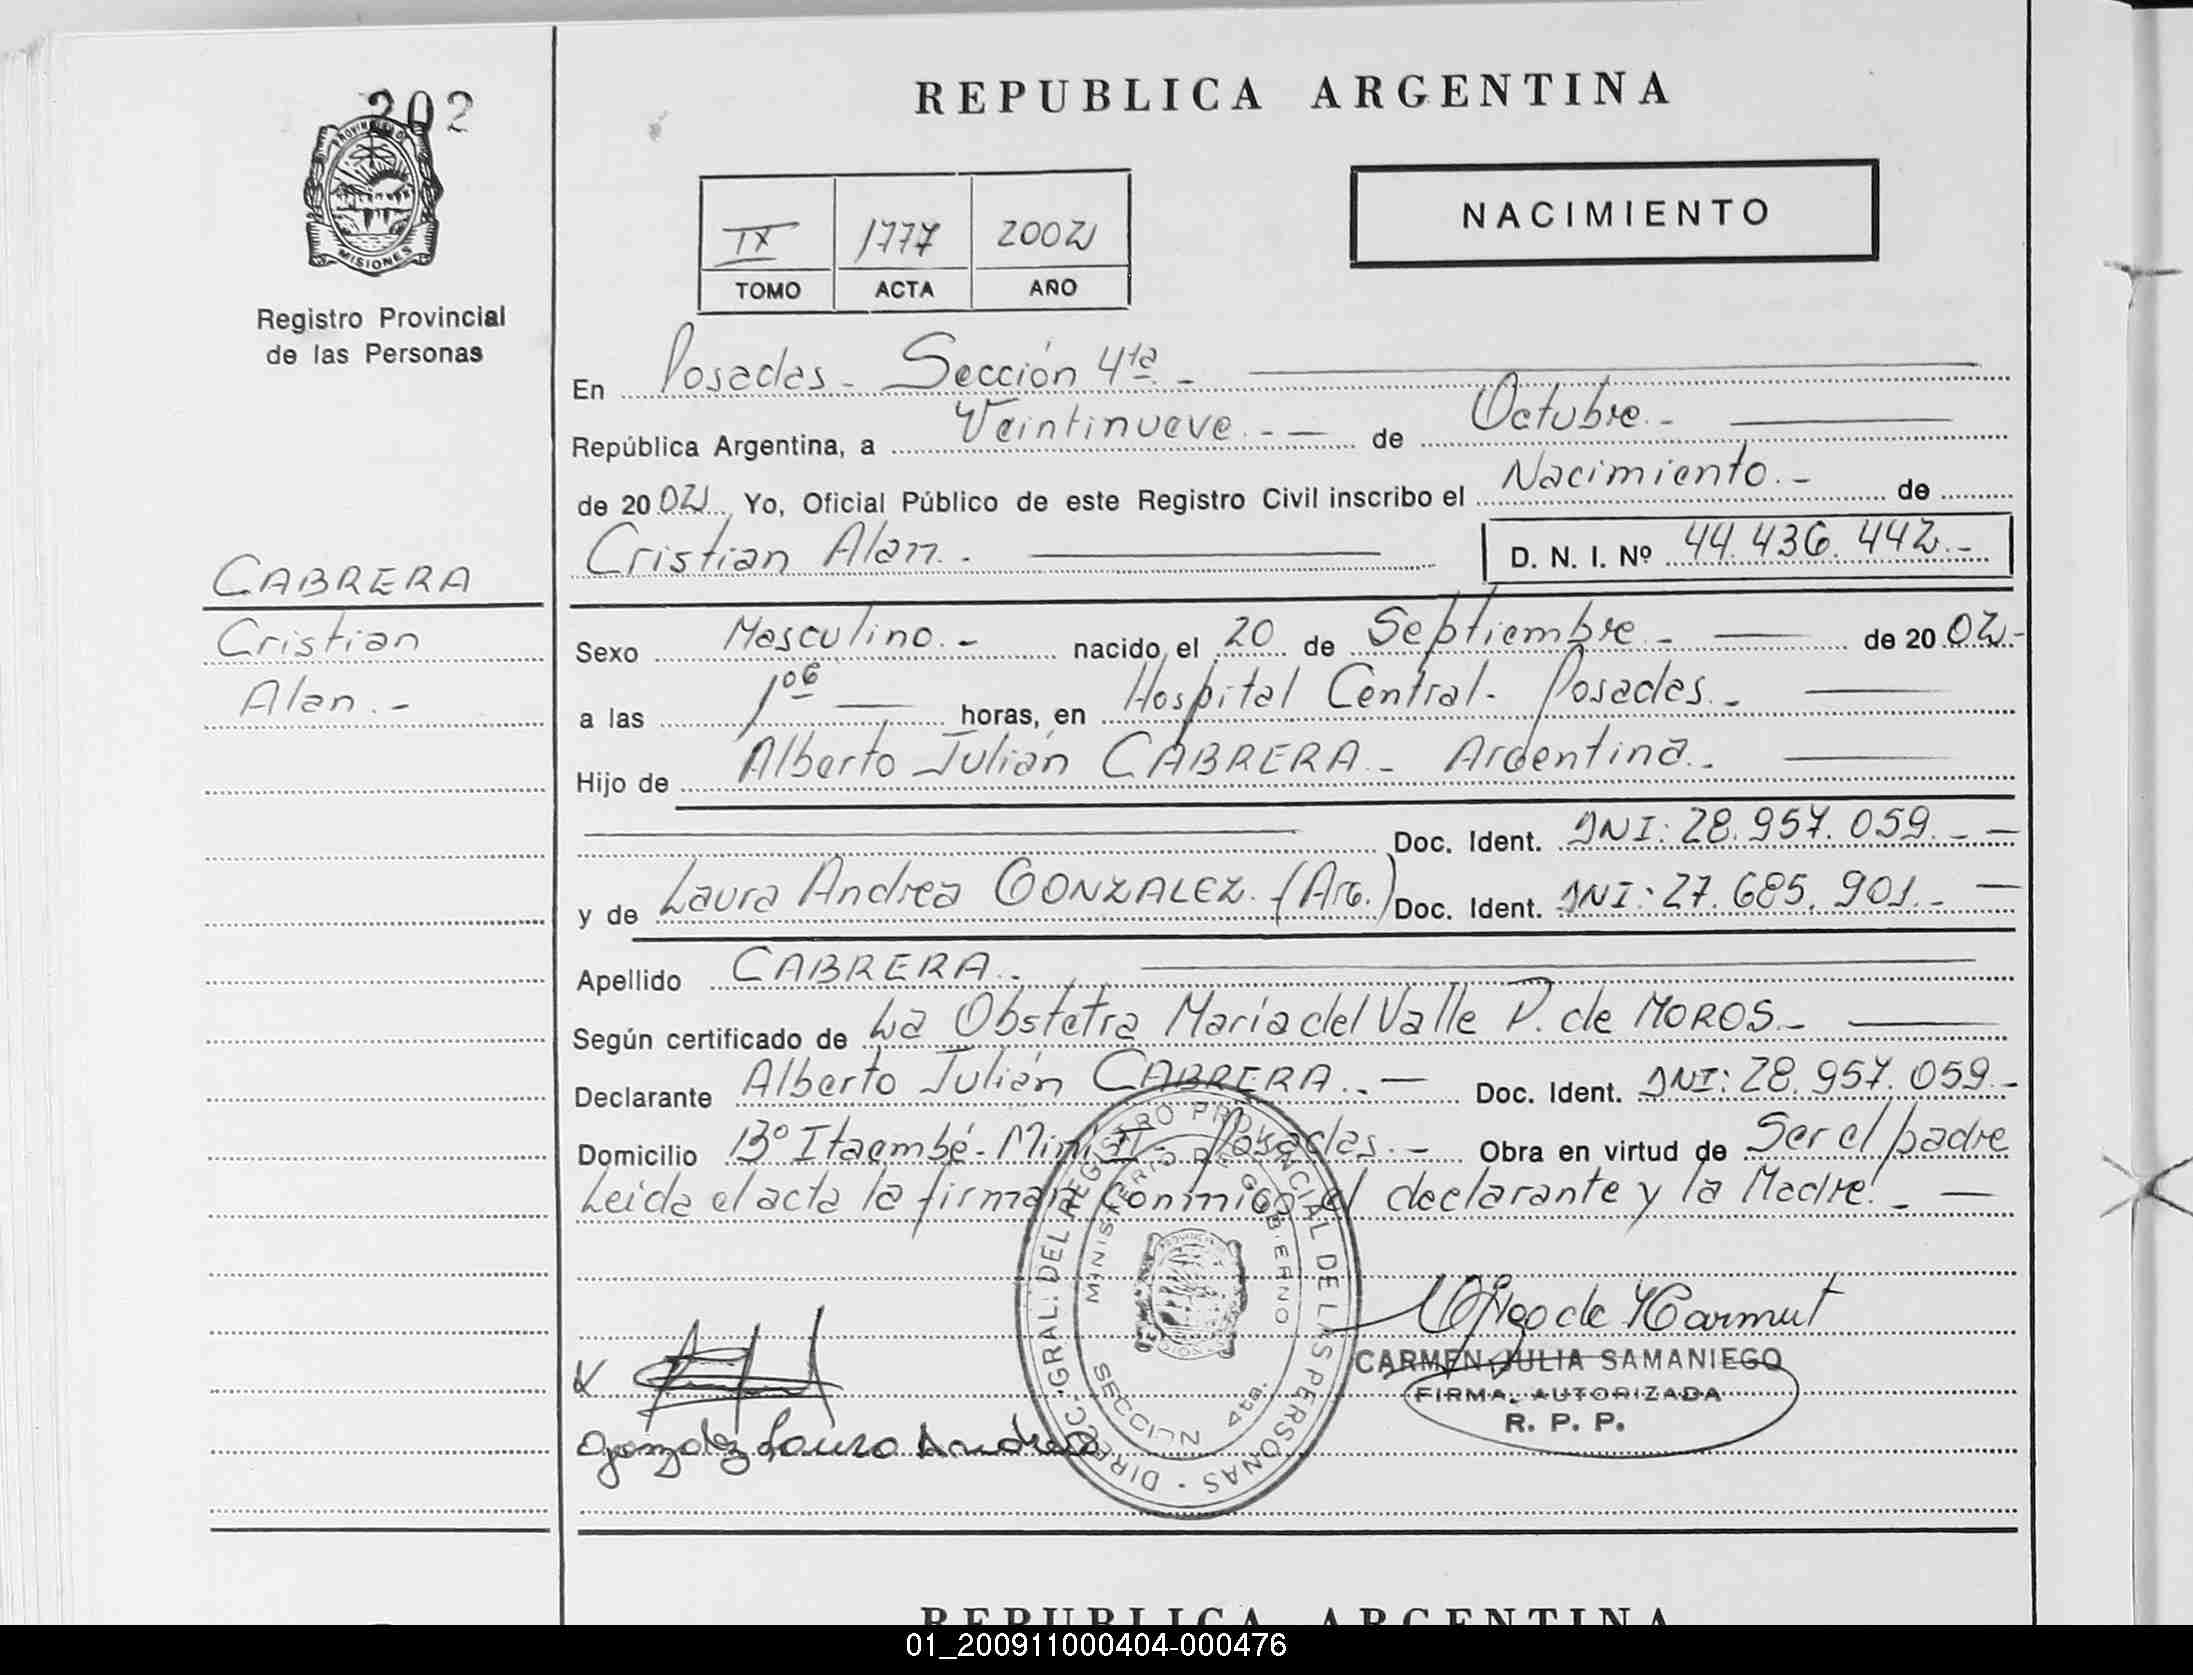 202
PROVINCIA DE
MISIONES
Registro Provincial
de las Personas
CABRERA
Cristian
Alan.-
REPUBLICA ARGENTINA
IX 1777 2002
TOMO ACTA AÑO
NACIMIENTO
En Posadas - Sección 4ta.-
República Argentina, a Veintinueve.- de Octubre.-
de 2002 Yo, Oficial Público de este Registro Civil inscribo el Nacimiento.- de
Cristian Alan.- D. N. I. Nº 44.436.442.-
Sexo Masculino.- nacido el 20 de Septiembre.- de 2002.-
a las 1 06 horas, en Hospital Central- Posadas.-
Hijo de Alberto Julián CABRERA.- Argentina.-
Doc. Ident. DNI: 28.957.059.-
y de Laura Andrea GONZALEZ. (Arg.) Doc. Ident. DNI: 27.685.901.-
Apellido CABRERA.-
Según certificado de La Obstetra Maria del Valle P. de MOROS.-
Declarante Alberto Julián CABRERA.- Doc. Ident. DNI: 28.957.059.-
Domicilio Bº Itaembé- Mini Posadas.- Obra en virtud de Ser el padre
Leida el acta la firman conmigo el declarante y la Madre.-
DIRECC. GRAL. DEL REGISTRO PROVINCIAL DE LAS PERSONAS
MINISTERIO DE GOBIERNO
SECCION 4ta.
CARMEN JULIA SAMANIEGO
FIRMA AUTORIZADA
R. P. P.
Gonzalez Laura Andrea
REPUBLICA ARGENTINA
01_200911000404-000476